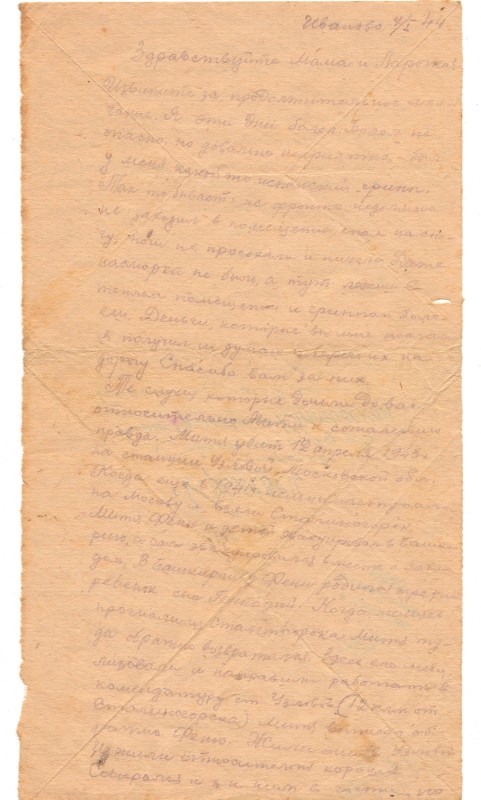 Иваново 4/I 44
Здравствуйте Мама и Ларочка!
Извините за продолжительное мол-
чание. Я эти дни болел. Болел не
опасно, но довольно неприятно. Был
у меня какой то испанский грипп.
Так то бывает, на фронте неделями
не заходил в помещение, спал на сне-
гу, ноги не просыхали и ничего. Даже
насморка не было, а тут лежал в
теплом помещении и гриппом
Деньги, которые вы мне
я получил и думаю сберечь их на
дорогу. Спасибо Вам за них.
Те слухи, которые дошли до вас
относительно Мити к сожалению
правда. Митя убит 12 апреля 1943 г.
на станции Узловой Московской обл.
Когда еще в 1941 г. немцы
на Москву и взяли Сталиногорск,
Митя Феню и детей эвакуировал в Башки-
рию, а сам эвакуировался вместе с
В Башкирии у Фени родился
ребенок сын Геннадий. Когда немцев
прогнали из Сталиногорска Митя ту-
да обратно возвратился. Здесь его моби-
лизовали и направили работать в
комендатуру ст. Узловой (12 клм от
Сталиногорска) Митя
Феню. Жили они в Узловой
и жили относительно хорошо.
Собирался и